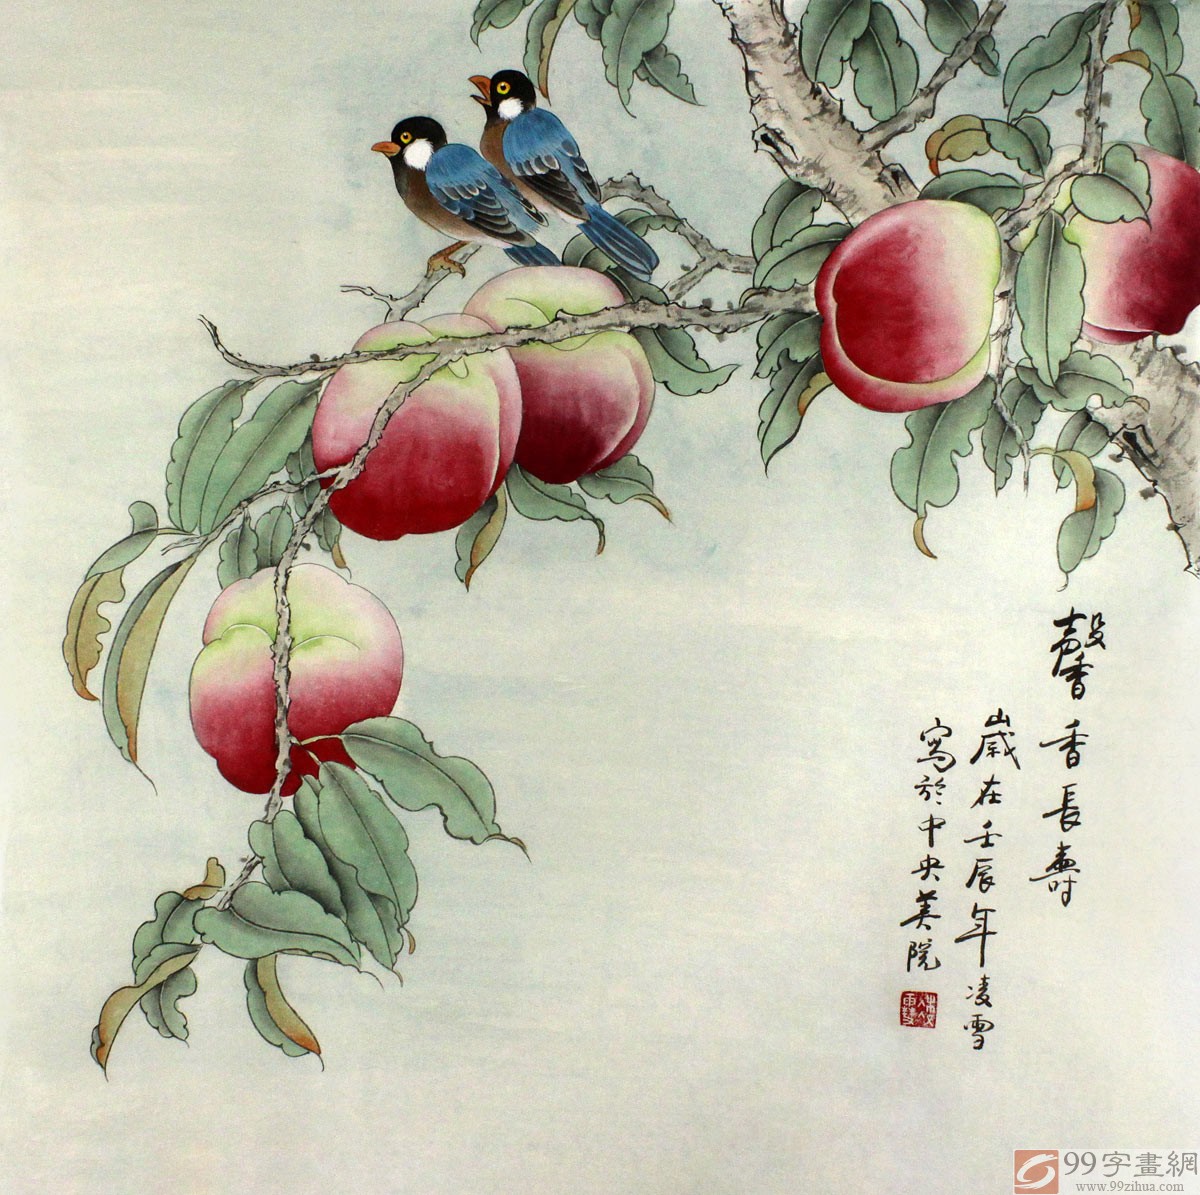 馨香長壽
歲在壬辰年凌雪
寫於中央美院
99字畫網
www.99zihua.com